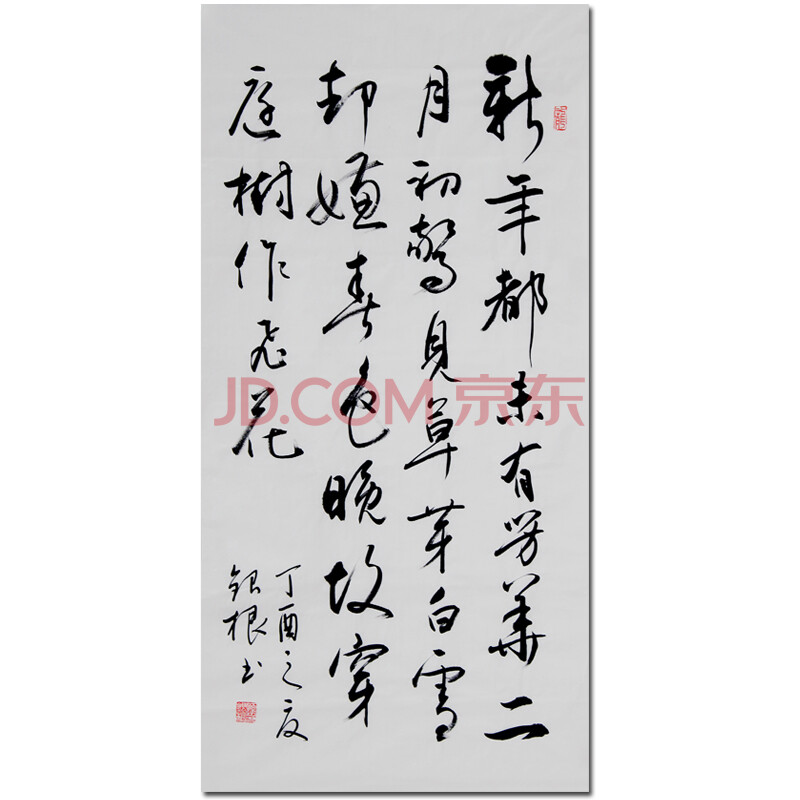 新年都未有芳華二
月初驚見草芽白雪
却嫌春色晚故穿
庭樹作飛花
丁酉之夏
銀根书
JD.COM 京东